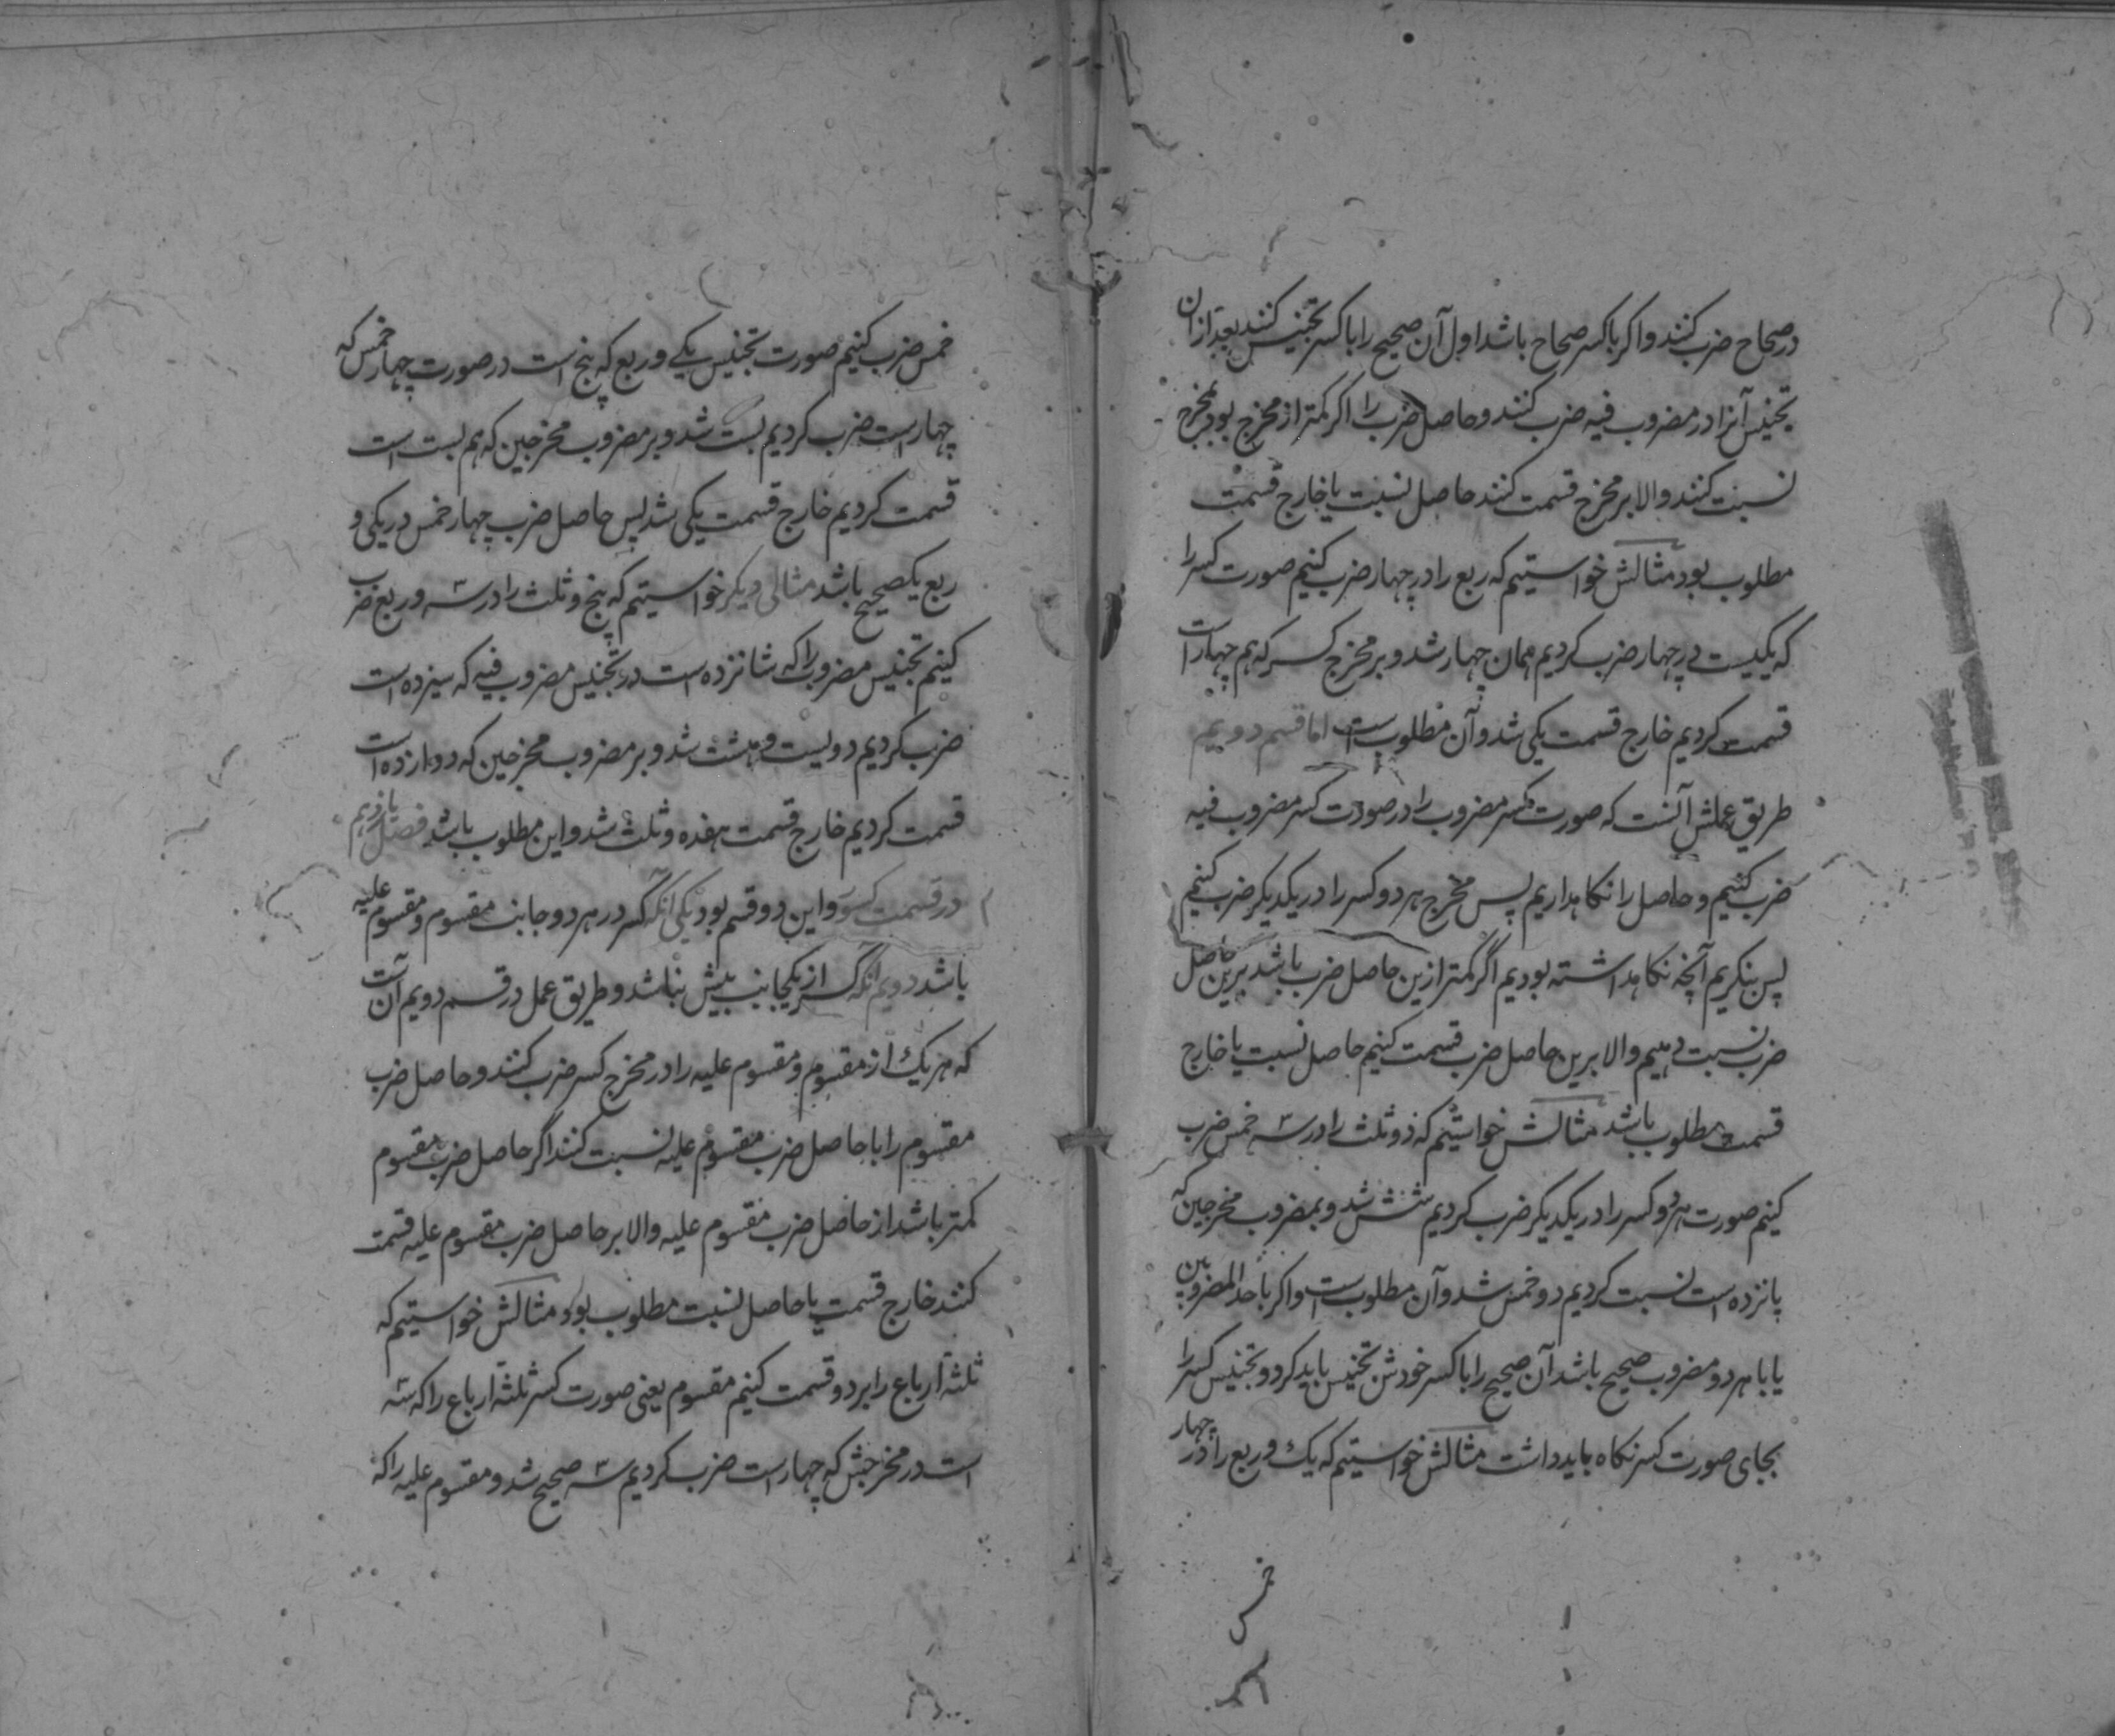 در صحاح ضرب کنند و اکر با کسر صحاح باشد اول آن صحیح را با کسر تجنیس کنند بعد از ان
تجنیس آنرا در مضروب فیه ضرب کنند و حاصل ضرب را اکر کمتر از مخرج بود بمخرج
نسبت کنند و الا بر مخرج قسمت کنند حاصل نسبت یا خارج قسمت
مطلوب بود مثالش خواستیم که ربع را در چهار ضرب کنیم صورت کسر را
که یکیست در چهار ضرب کردیم همان چهار شد و بر مخرج کسر که هم چهار است
قسمت کردیم خارج قسمت یکی شد و آن مطلوب است اما قسم دویم
طریق عملش آنست که صورت کسر مضروب را در صورت کسر مضروب فیه
ضرب کنیم و حاصل را نکاهداریم پس مخرج هر دو کسر را در یکدیکر ضرب کنیم
پس بنکریم آنچه نکاهداشته بودیم اگر کمتر ازین حاصل ضرب باشد برین حاصل
ضرب نسبت دهیم و الا برین حاصل ضرب قسمت کنیم حاصل نسبت یا خارج
قسمت مطلوب باشد مثالش خواستیم که دو ثلث را در سه خمس ضرب
کنیم صورت هر دو کسر را در یکدیکر ضرب کردیم شش شد و بمضروب مخرجین که
پانزده است نسبت کردیم دو خمس شد و آن مطلوب است و اکر باحد المضروبین
یا با هر دو مضروب صحیح باشد آن صحیح را با کسر خودش تجنیس باید کرد و تجنیس کسر را
بجای صورت کسر نکاه باید داشت مثالش خواستیم که یک و ربع را در چهار
خمس
خمس ضرب کنیم صورت تجنیس یکی و ربع که پنج است در صورت چهار خمس که
چهار است ضرب کردیم بست شد و بر مضروب مخرجین که هم بست است
قسمت کردیم خارج قسمت یکی شد پس حاصل ضرب چهار خمس در یکی و
ربع یکصحیح باشد مثالی دیکر خواستیم که پنج و ثلث را در سه و ربع ضرب
کنیم تجنیس مضروب را که شانزده است در تجنیس مضروب فیه که سیزده است
ضرب کردیم دویست و هشت شد و بر مضروب مخرجین که دوازده است
قسمت کردیم خارج قسمت هفده و ثلث شد و این مطلوب باشد فصل یازدهم
در قسمت کسور و این دو قسم بود یکی آنکه کسر در هر دو جانب مقسوم و مقسوم علیه
باشد دویم آنکه کسر از یکجانب بیش نباشد و طریق عمل در قسم دویم آنست
که هر یک از مقسوم و مقسوم علیه را در مخرج کسر ضرب کنند و حاصل ضرب
مقسوم را با حاصل ضرب مقسوم علیه نسبت کنند اگر حاصل ضرب مقسوم
کمتر باشد از حاصل ضرب مقسوم علیه و الا بر حاصل ضرب مقسوم علیه قسمت
کنند خارج قسمت یا حاصل نسبت مطلوب بود مثالش خواستیم که
ثلثة ارباع را بر دو قسمت کنیم مقسوم یعنی صورت کسر ثلثة ارباع را که سه
است در مخرجش که چهار است ضرب کردیم سه صحیح شد و مقسوم علیه را که